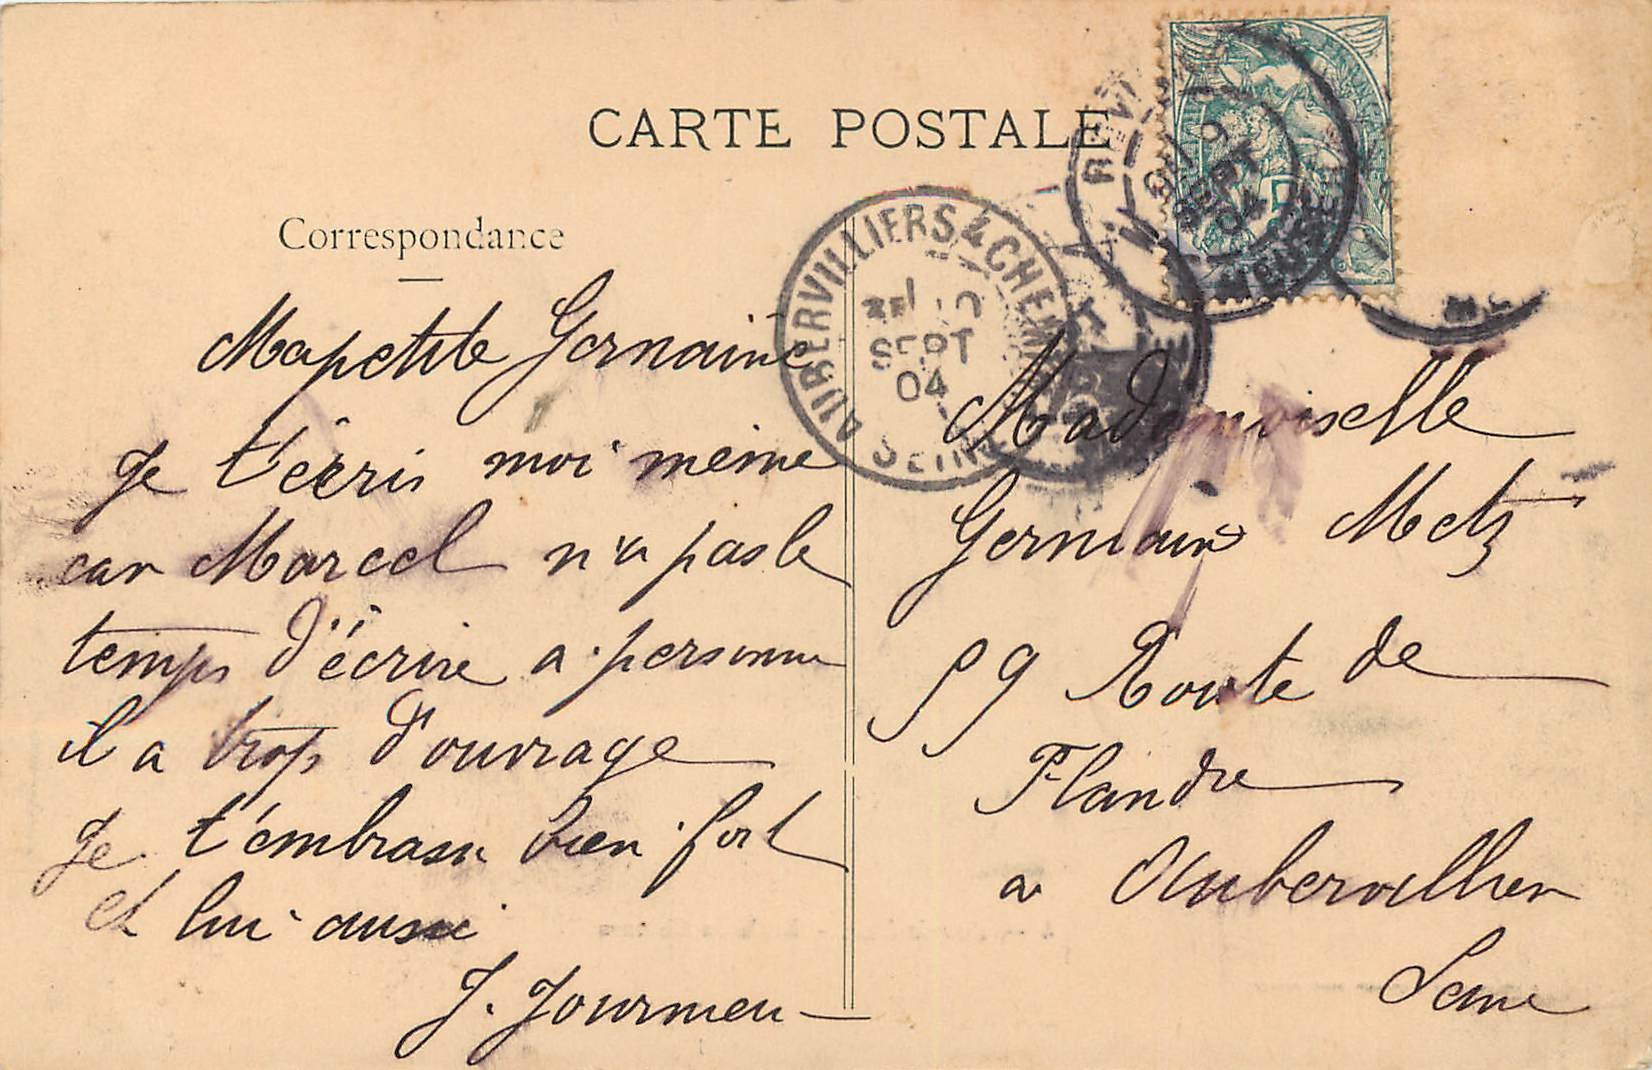 CARTE POSTALE
Correspondance
Ma petite Germaine
Je t'écris moi même
car Marcel n'a pas le
temps d'écrire a personne
il a trop d'ouvrage
Je t'embrasse bien fort
et lui aussi
J.
AUBERVILLIERS & CHEM
SEPT
04
SEINE
SEPT
04
MEUSE
Mademoiselle
Germaine Metz
59 Route de
Flandre
a Aubervillier
Seine